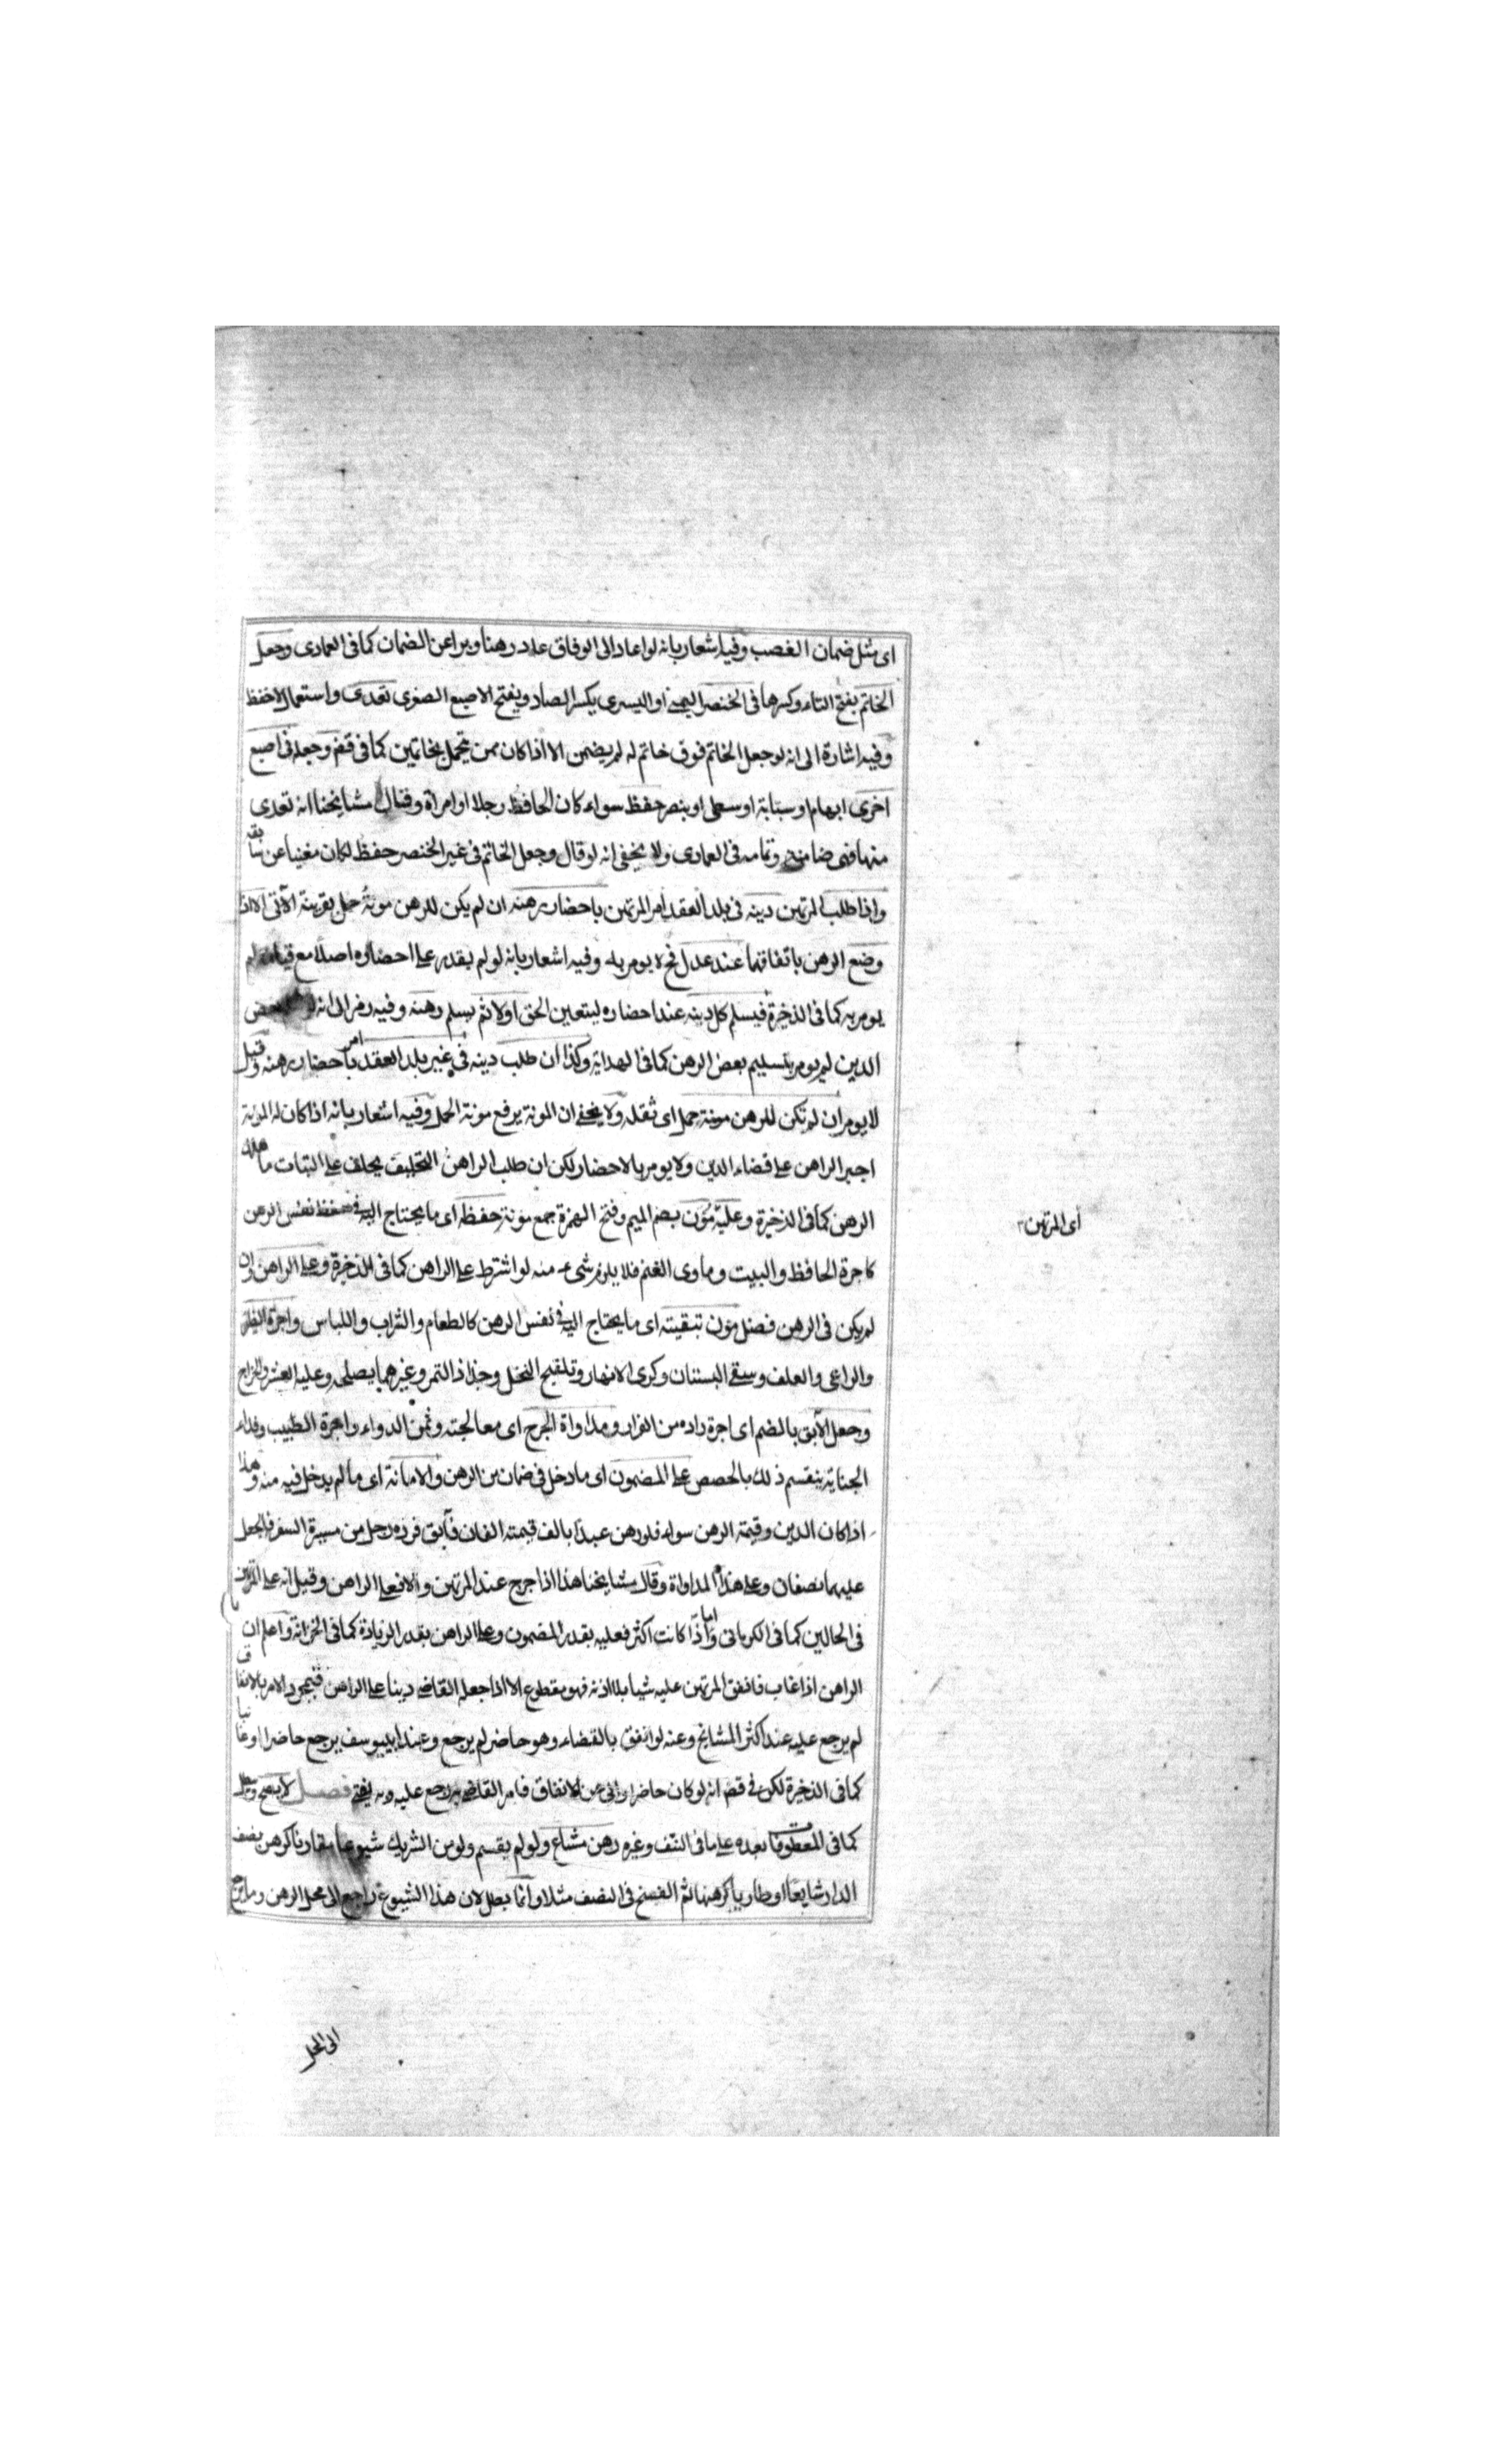 اى مثل ضمان الغصب وفيه اشعار بانه لو اعاد الى الوفاق عاد رهنا وبرا عن الضمان كما فى العمادى وجعل
الخاتم بفتح التاء وكسرها فى الخنصر اليمنى او اليسرى بكسر الصاد ويفتح الاصبع الصغرى تعدى واستعمال لا حفظ
وفيه اشارة الى انه لو جعل الخاتم فوق خاتم له لم يضمن الا اذا كان ممن يتجمل بخاتمين كما فى قضم وجعله فى اصبع
اخرى ابهام او سبابة او وسطى او بنصر حفظ سواء كان الحافظ رجلا او امراة وقال مشايخنا انه تعدى
منها فهى ضامنة وتمامه فى العمادى ولا يخفى انه لو قال وجعل الخاتم فى غير الخنصر حفظ لكان مغنيا عن سابقه
واذا طلب المرتهن دينه فى بلد العقد امر المرتهن باحضار رهنه ان لم يكن للرهن مونة حمل بقرينة الآتى الا اذا
وضع الرهن باتفاقهما عند عدل فح لا يومر به وفيه اشعار بانه لو لم يقدر على احضاره اصلا مع قيامه لم
يومر به كما فى الذخيرة فيسلم كل دينه عند احضاره ليتعين الحق اولا ثم يسلم رهنه وفيه رمز الى انه لو بعض
الدين لم يومر بتسليم بعض الرهن كما فى الهداية وكذا ان طلب دينه فى غير بلد العقد امر باحضار رهنه وقيل
لا يومر ان لم تكن للرهن مونة حمل اى ثقله ولا يخفى ان المونة يرفع مونة الحمل وفيه اشعار بانه اذا كان له المونة
اجبر الراهن على قضاء الدين ولا يومر بالاحضار لكن ان طلب الراهن التحليف يحلف على البتات ما هلك
الرهن كما فى الذخيرة وعليه مؤن بضم الميم وفتح الهمزة جمع مونة حفظه اى ما يحتاج اليه فى حفظ نفس الرهن
اى المرتهن
كاجرة الحافظ والبيت وماوى الغنم فلا يلزم شىء منه لو اشترط على الراهن كما فى الذخيرة وعلى الراهن وان
لم يكن فى الرهن فضل مؤن تبقيته اى ما يحتاج اليه فى نفس الرهن كالطعام والشراب واللباس واجرة الظئر
والراعى والعلف وسقى البستان وكرى الانهار وتلقيح النخل وجذاذ التمر وغيرهما يصلحه وعليه العشر والخراج
وجعل الآبق بالضم اى اجرة راده من الفرار ومداواة الجرح اى معالجته وثمن الدواء واجرة الطبيب وفداء
الجناية ينقسم ذلك بالحصص على المضمون اى ما دخل فى ضمان من الرهن والامانة اى ما لم يدخل فيه منه وهذا
اذا كان الدين وقيمة الرهن سواء فلو رهن عبدا بالف قيمته الفان فأبق فرده رجل من مسيرة السفر فالجعل
عليهما نصفان وعلى هذا المداواة وقال مشايخنا هذا اذا جرح عند المرتهن والا فعلى الراهن وقيل انه على المرتهن
فى الحالين كما فى الكرمانى واما اذا كانت اكثر فعليه بقدر المضمون وعلى الراهن بقدر الزيادة كما فى الخزانة واعلم ان
الراهن اذا غاب فانفق المرتهن عليه شيا بلا اذنه فهو يقطوع الا اذا جعله القاضى دينا على الراهن فبمجرد الامر بالانفاق
لم يرجع عليه عند اكثر المشايخ وعنه لو انفق بالقضاء وهو حاضر لم يرجع وعند ابيبوسف يرجع حاضرا او غائبا
كما فى الذخيرة لكن فى قضم انه لو كان حاضرا وابى عن الانفاق فامر القاضى به رجع عليه وبه يفتى فصل لا يصح
كما فى المعطوفات بعده على ما فى النتف وغيره رهن مشاع ولو لم يقسم ولو من الشريك شيوعا مقارنا كرهن نصف
الدار شايعا او طاريا كرهنها ثم الفسخ فى النصف مثلا وانما بطل لان هذا الشيوع راجع الى محل الرهن وما يرجع
الى المحل